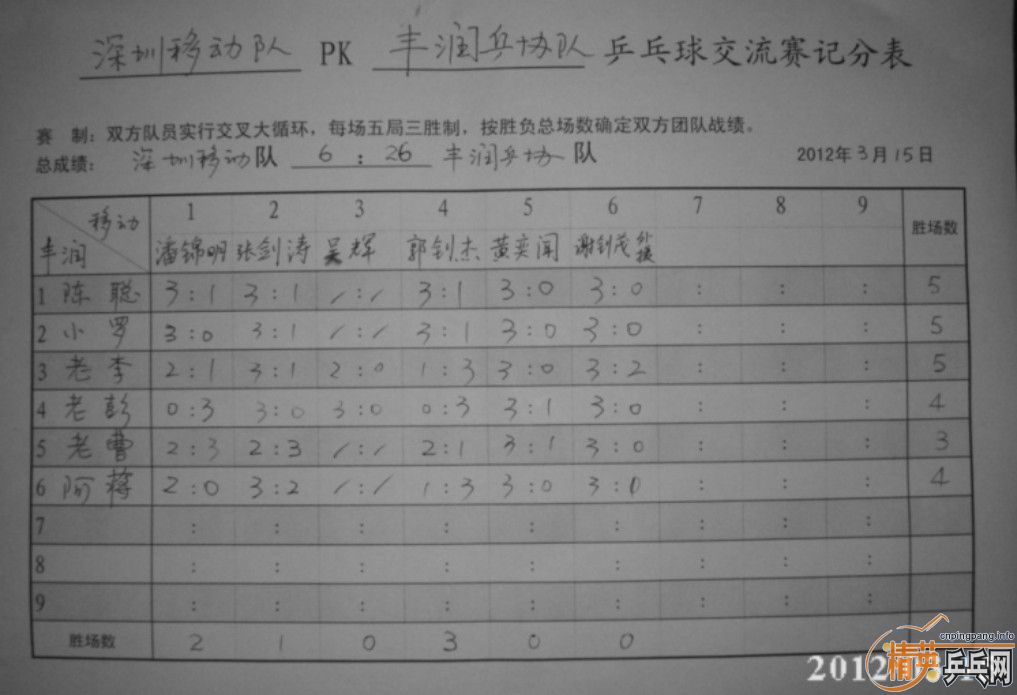 深圳移动队 PK 丰润乒协队 乒乓球交流赛记分表
赛 制：双方队员实行交叉大循环，每场五局三胜制，按胜负总场数确定双方团队战绩。
总成绩： 深圳移动队 6 : 26 丰润乒协队 2012年3月15日
移动 1 2 3 4 5 6 7 8 9 胜场数
丰润 潘锦明 张剑涛 吴辉 郭钊杰 黄奕闻 谢钊茂 外援
1 陈聪 3:1 3:1 /:/ 3:1 3:0 3:0 : : : 5
2 小罗 3:0 3:1 /:/ 3:1 3:0 3:0 : : : 5
3 老李 2:1 3:1 2:0 1:3 3:0 3:2 : : : 5
4 老彭 0:3 3:0 3:0 0:3 3:1 3:0 : : : 4
5 老曹 2:3 2:3 /:/ 2:1 3:1 3:0 : : : 3
6 阿蒋 2:0 3:2 /:/ 1:3 3:0 3:0 : : : 4
7 : : : : : : : : :
8 : : : : : : : : :
9 : : : : : : : : :
胜场数 2 1 0 3 0 0
cnpingpang.info
精英乒乓网
2012